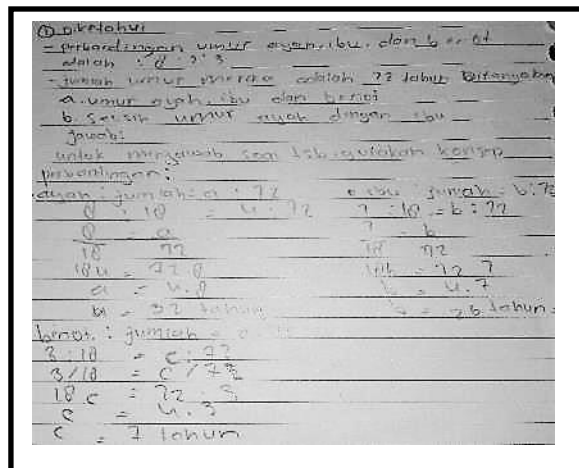 ① Diketahui
- perbandingan umur ayah, ibu, dan benot
adalah : 8 : 7 : 3
- jumlah umur mereka adalah 72 tahun Ditanyakan
a. umur ayah, ibu dan benot
b. selisih umur ayah dengan ibu
Jawab:
untuk menjawab soal tsb, gunakan konsep
perbandingan:
ayah : jumlah = a : 72
8 : 18 = a : 72
8 = a
18 72
18a = 72 . 8
a = 4 . 8
a = 32 tahun
ibu : jumlah = b : 72
7 : 18 = b : 72
7 = b
18 72
18b = 72 . 7
b = 4 . 7
b = 28 tahun
benot : jumlah =
3 : 18 = c : 72
3/18 = c / 72
18 c = 72 . 3
c = 4 . 3
c = 7 tahun